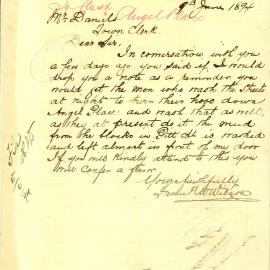 To Wash
Angel Place
9th June 1894
Mr Daniels
Town Clerk
Dear Sir,
In conversation with you
a few days ago you said if I would
drop you a note as a reminder you
would get the men who wash the Streets
at night to turn their hose down
Angel Place and wash that as well,
as they at present do it the mud
from the blocks in Pitt St is washed
and left almost in front of my door
If you will kindly attend to this you
will confer a favor
Yours faithfully
Wilson